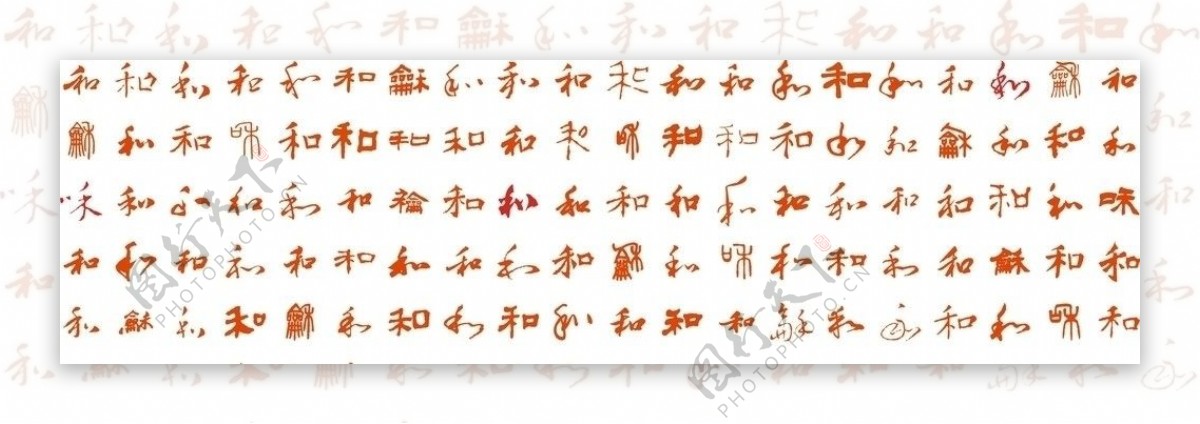 和和和和和和龢和和和和和和和和和和和龢和
龢和和咊和和和和和和咊和和和和和龢和和和
咊和和和和和和和和和和和和和和和和和咊
和和和和和和和和和和龢和咊和和和和龢和和
和龢和和龢和和和和和和和和龢和和和和咊和
图行天下
PHOTOPHOTO.CN
图行天下
PHOTOPHOTO.CN